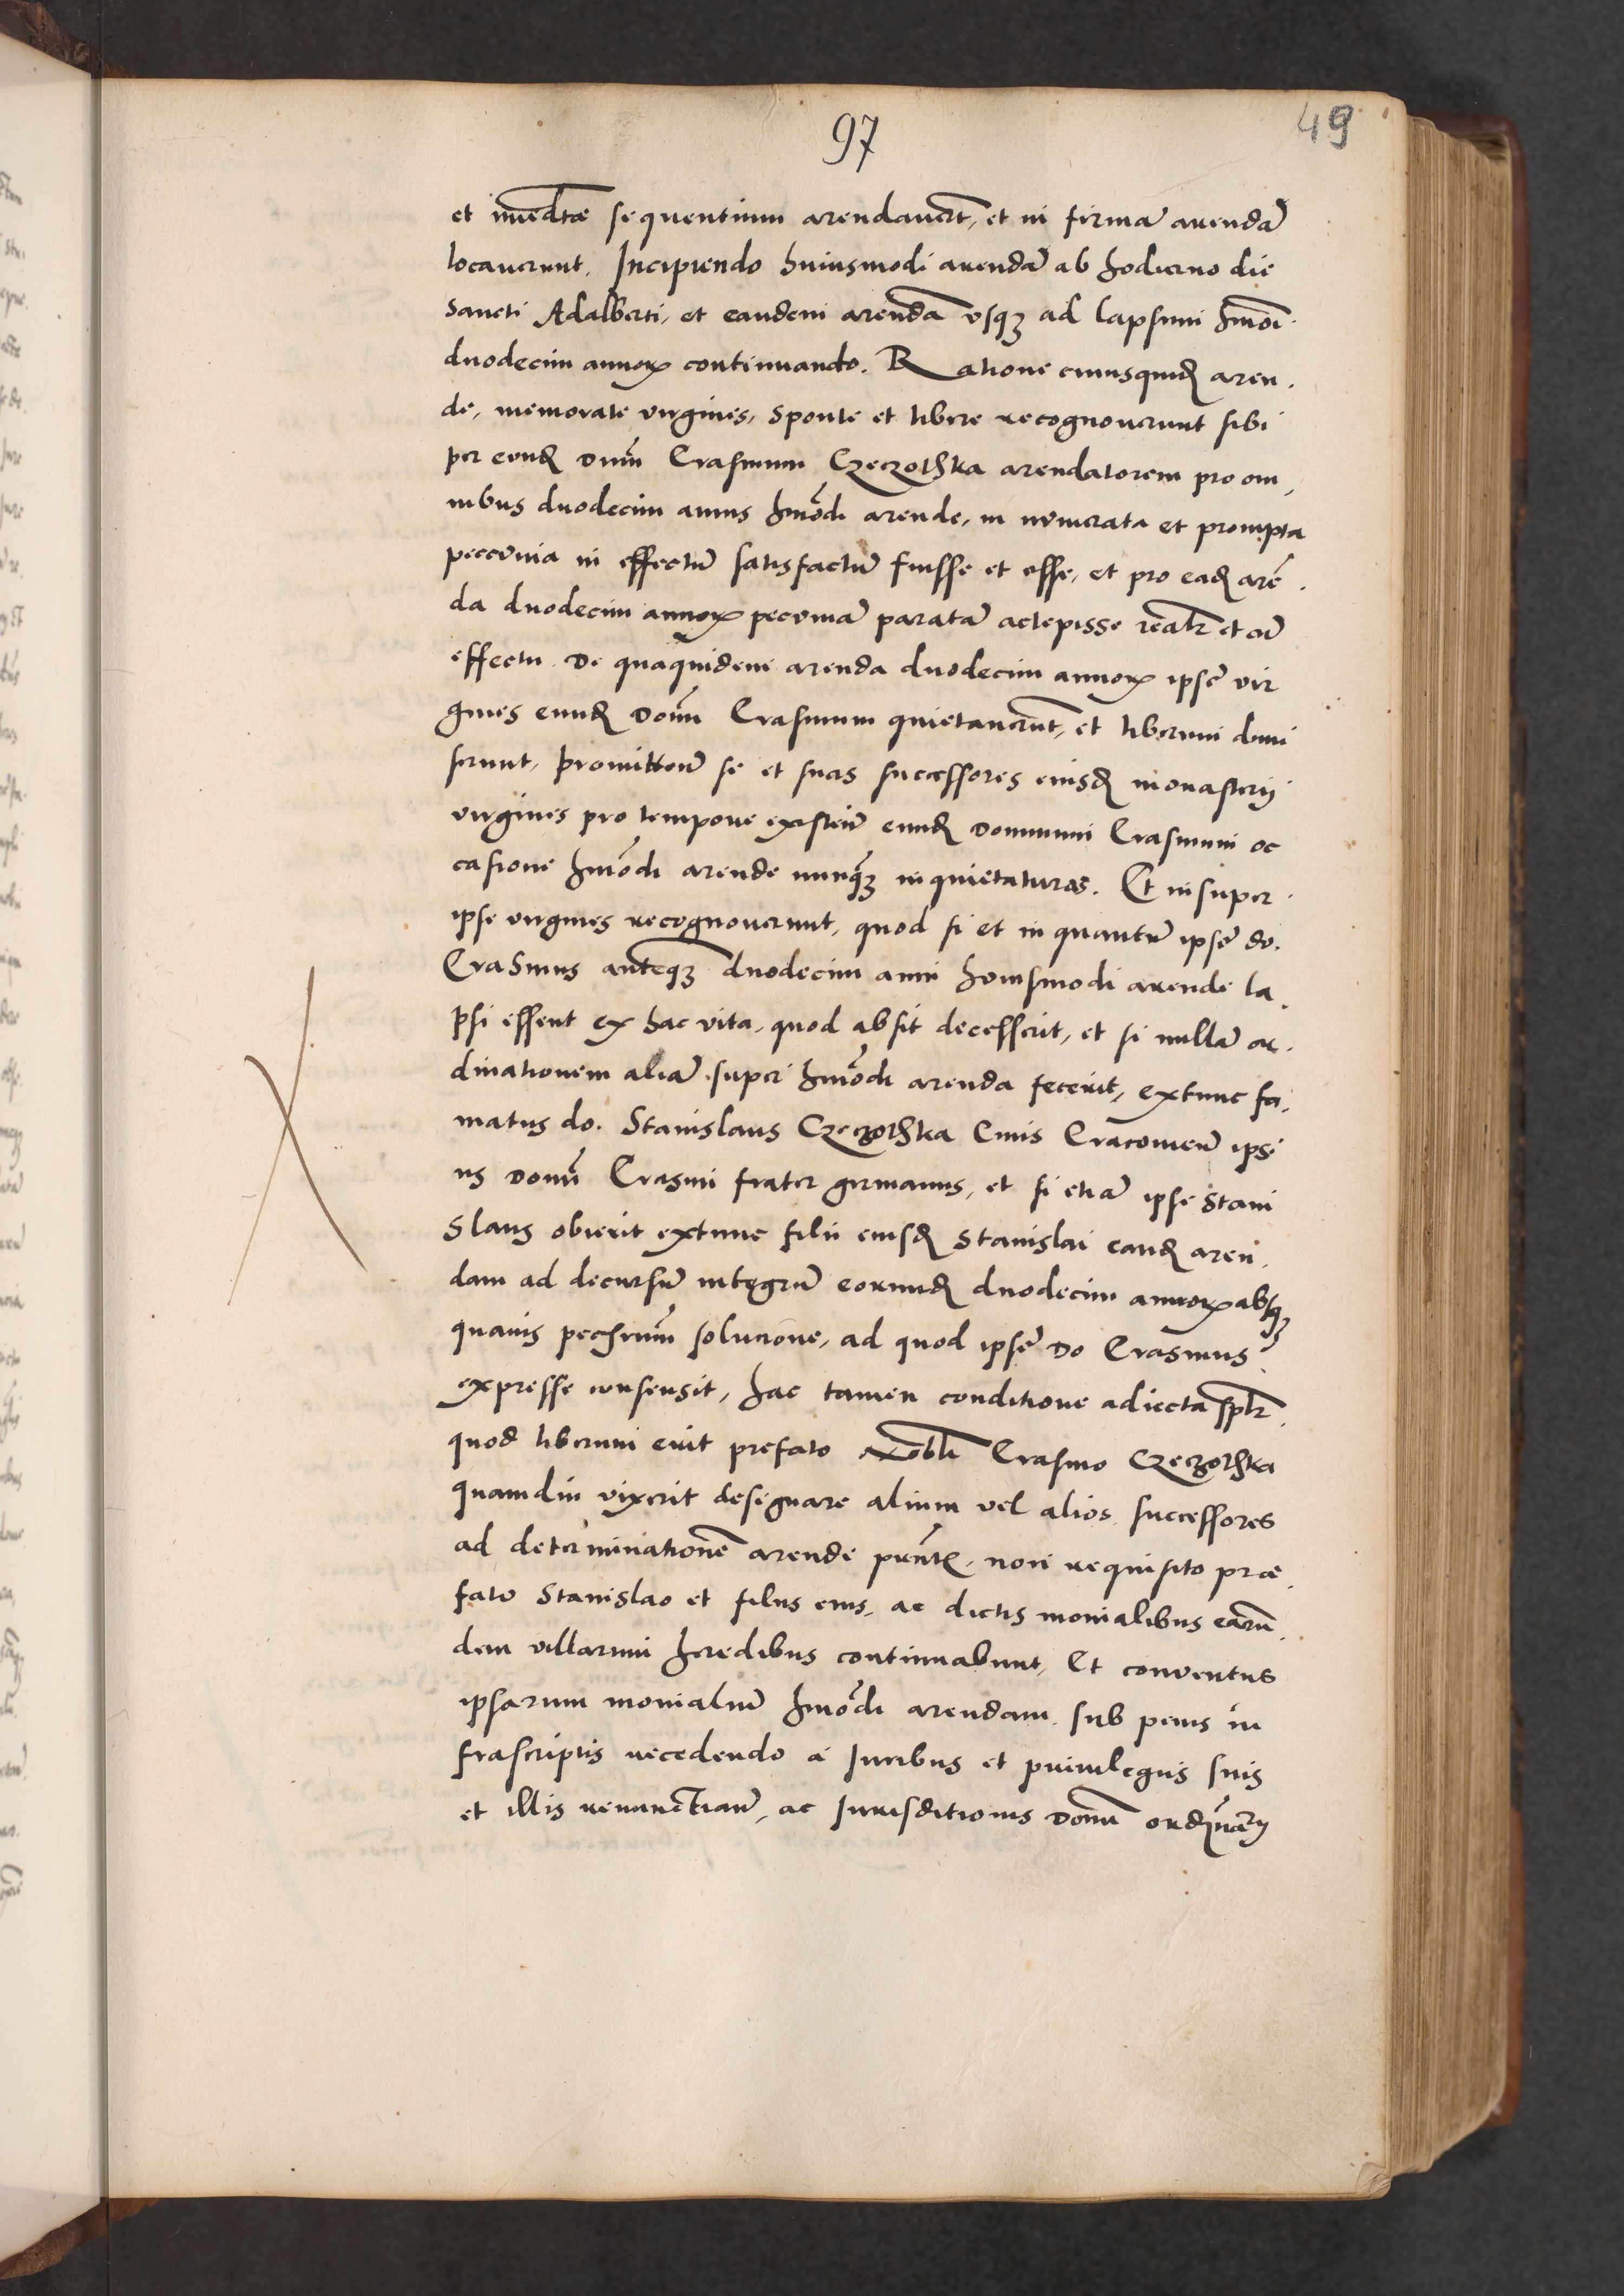 97
49
et immedtae sequentium arendauerūt, et in firmā arendā
locauerunt. Incipiendo huiusmodi arendā ab hodierno die
Sancti Adalberti, et eandem arendā vsqꝫ ad lapsum hmōi
duodecim annoꝝ continuando. Ratione cuiusquidꝫ aren-
de, memorate virgines, sponte et libere recognouerunt sibi
per eundꝫ Dnm̄ Erasmum Czeczothka arendatorem pro om-
nibus duodecim annis hmōdi arende, in numerata et prompta
peccunia in effectū satisfactū fuisse et esse, et pro eadꝫ arē-
da duodecim annoꝝ pecuniā paratā accepisse realr̄ et cū
effectu. De quaquidem arenda duodecim annoꝝ ipsē vir
gines eundꝫ Dom̄ Erasmum quietauerūt, et liberum dimi
serunt, promitten̄ se et suas successores eiusdꝫ monasterij
virgines pro tempore existen̄ eundꝫ Dominum Erasmum oc
casione hmōdi arende nunqꝫ inquietaturas. Et insuper
ipse virgines recognouerunt, quod si et in quantū ipsē do.
Erasmus anteqꝫ duodecim anni huiusmodi arende la-
psi essent ex hac vita, quod absit decesserit, et si nullā or-
dinationem aliā super hmōdi arenda fecerit, extunc fa-
matus do. Stanislaus Czeczothka Ciuis Cracouien̄ ipsi
us Dom̄ Erasmi frater germanus, et si etiā ipse Stani
slaus obierit extunc filii eiusdꝫ Stanislai eandꝫ aren-
dam ad decursū integrū eorundꝫ duodecim annoꝝ absqꝫ
quauis pechunm̄ solucione, ad quod ipsē Do Erasmus
expresse consensit, hac tamen conditione adiecta splr̄
quod liberum erit prefato Nobli Erasmo Czeczothka
quamdiu vixerit designare alium vel alios successores
ad determinationē arende pn̄tꝫ, non requisito præ-
fato Stanislao et filiis eius, ac dictis monialibus earū-
dem villarum heredibus continuabunt, Et conuentus
ipsarum monialiū hmōdi arendam, sub penis in
frascriptis recedendo a Iuribus et priuilegiis suis
et illis renunctian̄, ac Iurisditionis Dom̄ ordinarij